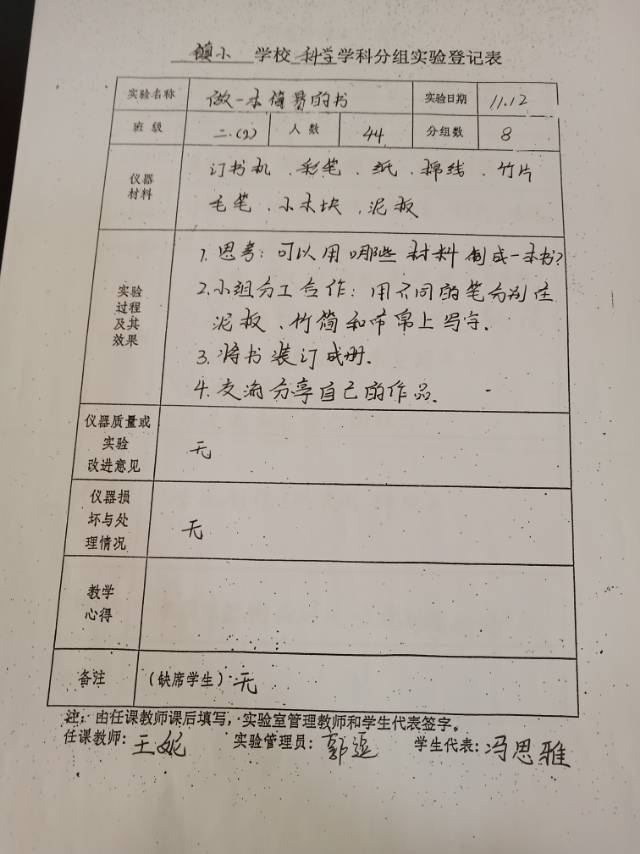 镇小 学校 科学学科分组实验登记表
实验名称 做一本简易的书 实验日期 11.12
班级 二.(2) 人数 44 分组数 8
仪器材料 订书机、彩笔、纸、棉线、竹片
毛笔、小木块、泥板
实验过程及其效果
1.思考:可以用哪些材料制成一本书?
2.小组分工合作:用不同的笔分别在
泥板、竹简和布帛上写字.
3.将书装订成册.
4.交流分享自己的作品.
仪器质量或实验改进意见 无
仪器损坏与处理情况 无
教学心得
备注 (缺席学生) 无
注:由任课教师课后填写,实验室管理教师和学生代表签字。
任课教师:王妮 实验管理员:郭 学生代表:冯思雅